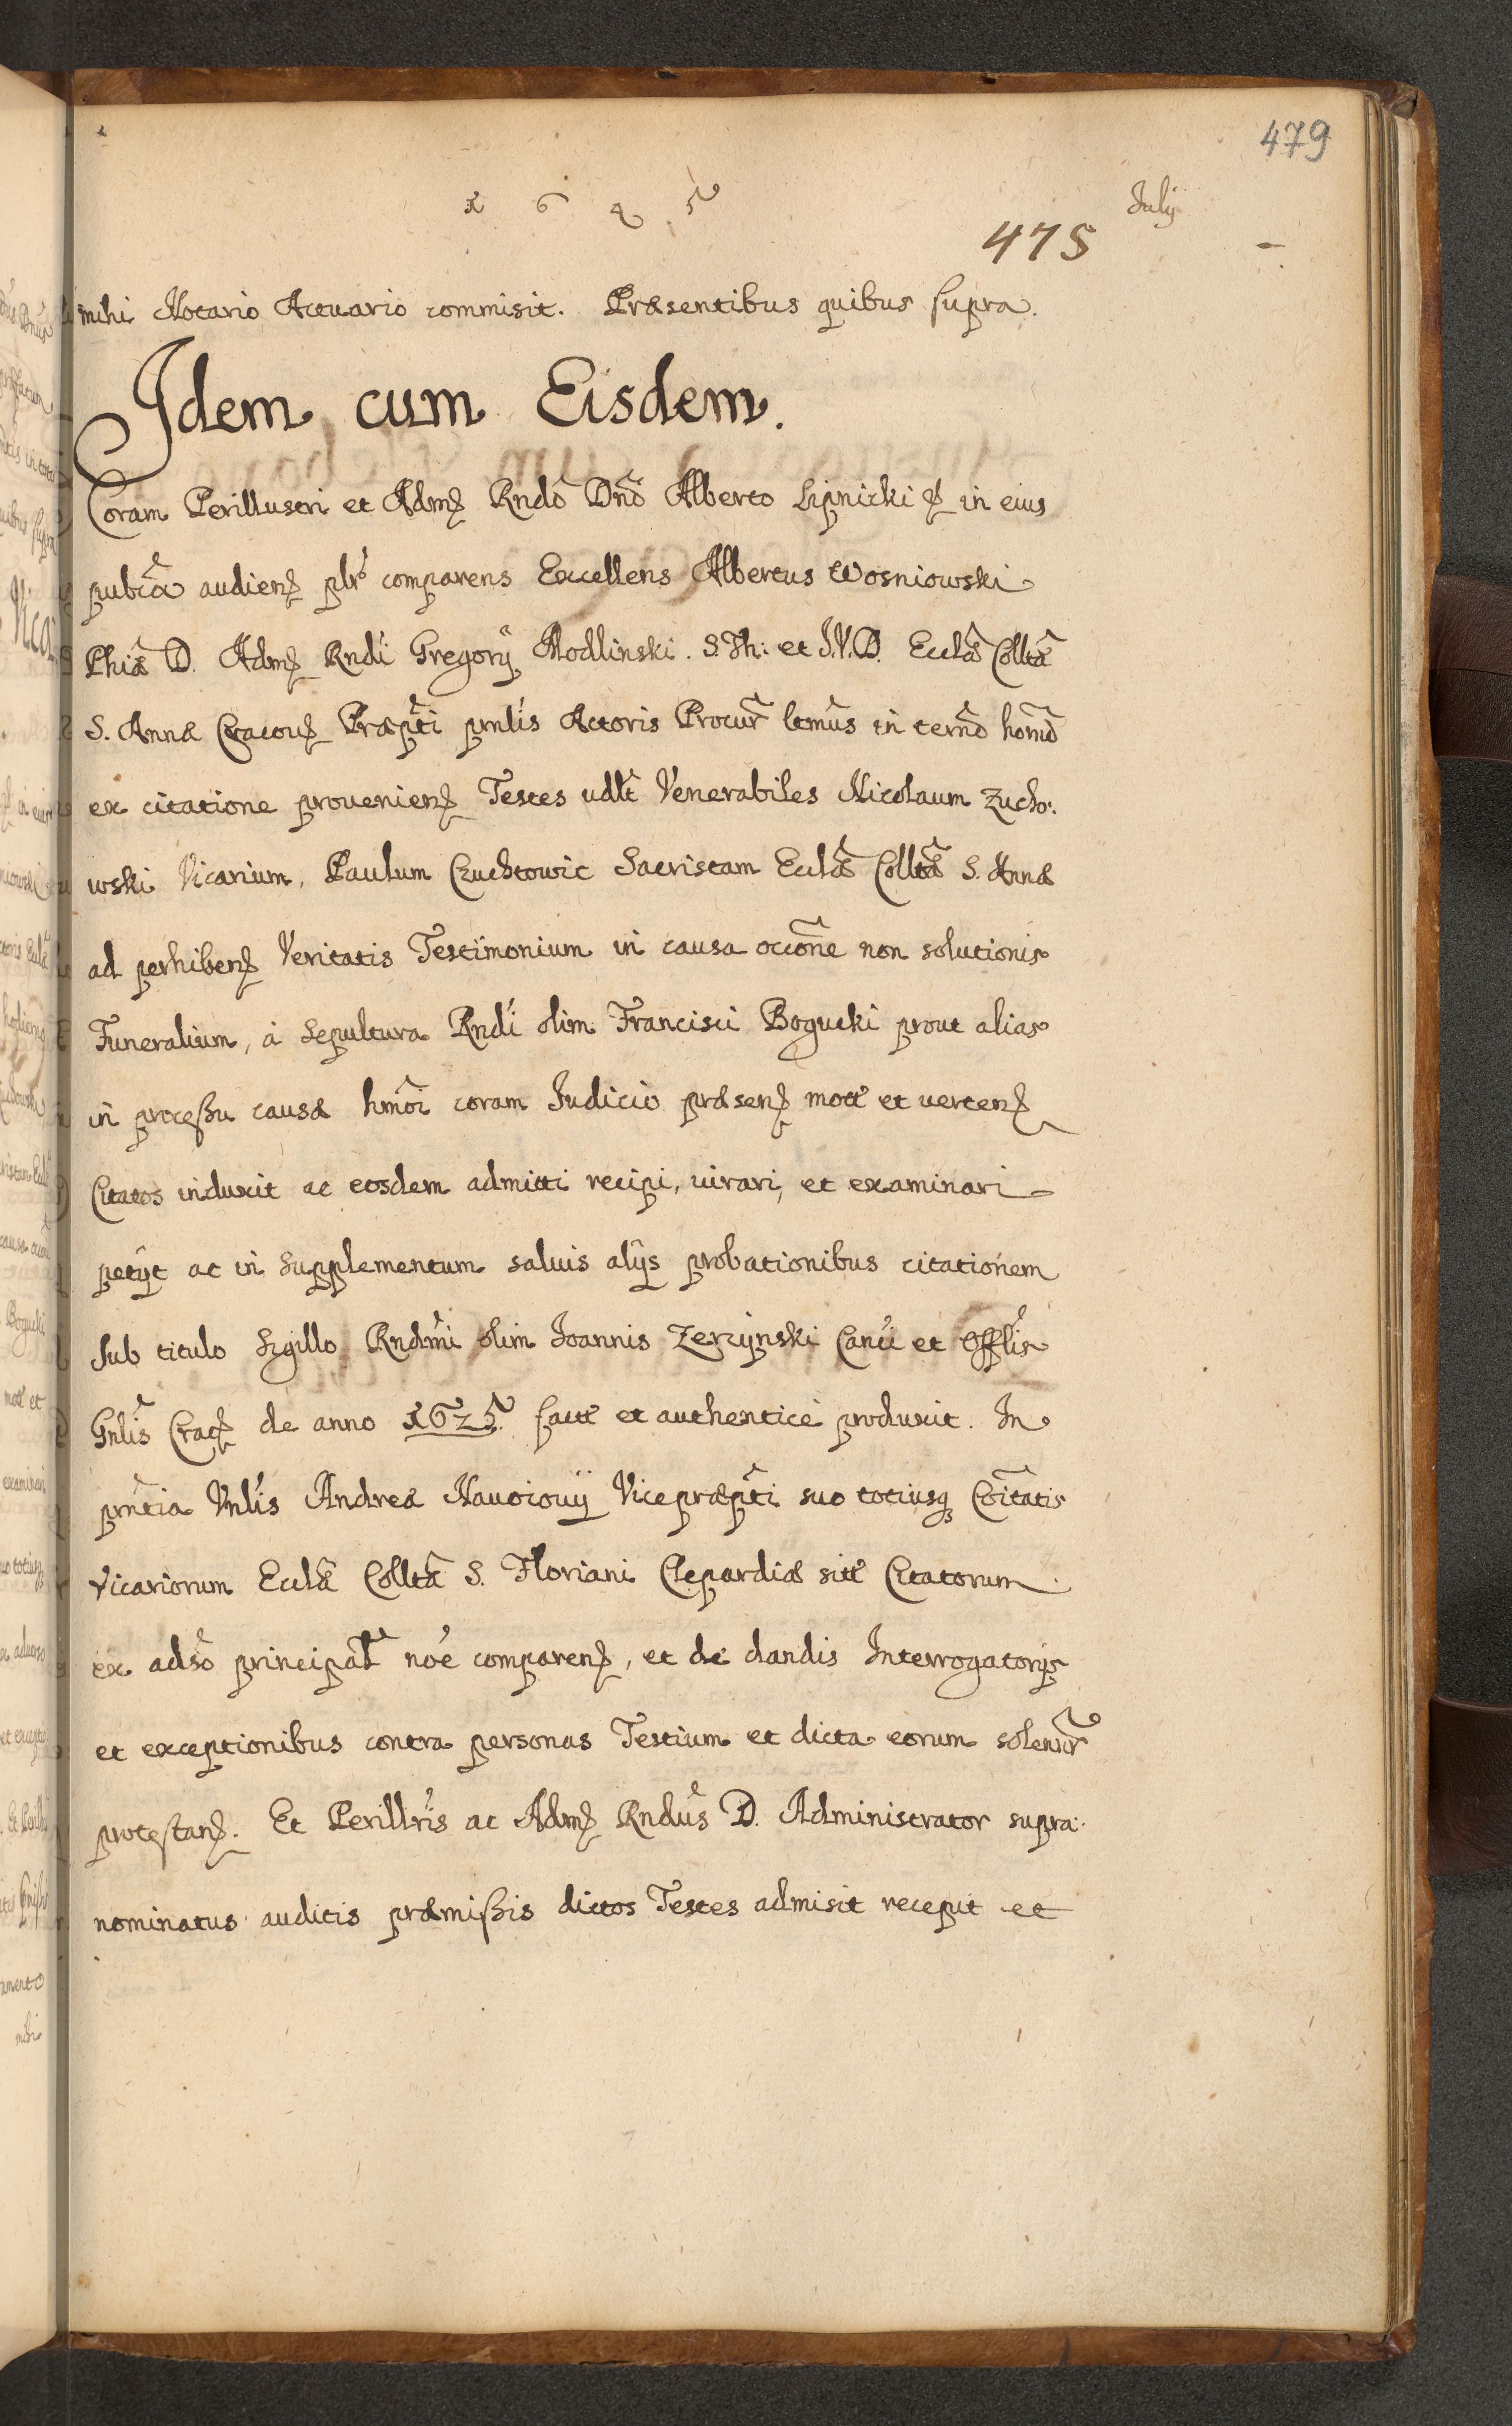 479
1645
July
475
mihi Notario Actuario commisit. Præsentibus quibus supra.
Idem cum Eisdem.
Coram Perillustri et Adm. Rndo Dno Alberto Lipnicki etc. in eius
pubca audien. plr comparens Excellens Albertus Wosniowski
Phiæ D. Adm. Rndi Gregorij Modlinski. S. Th: et J.V.D. Ecclæ Colltæ
S. Annæ Cracou. Præpti pnlis Actoris Procur ltmus in termo homo
ex citatione prouenien. Testes vdlt Venerabiles Nicolaum Zucho:
wski Vicarium, Paulum Czuchtowic Sacristam Ecclæ Colltæ S. Annæ
ad perhiben. Veritatis Testimonium in causa occone non solutionis
Funeralium, à sepultura Rndi olim Francisci Bogucki prout alias
in processu causæ hmoi coram Iudicio præsen. mott et verten.
Citatos induxit ac eosdem admitti recipi, iurari, et examinari
petijt ac in supplementum saluis alijs probationibus citationem
sub titulo Sigillo Rndmi olim Ioannis Zerzynski Canci et Offlis
Gnlis Crac. de anno 1625. fact et authenticè produxit. In
pntia Vnlis Andreæ Nauoiouij Vicepræpti suo totiusq Coitatis
Vicariorum Ecclæ Colltæ S. Floriani Clepardiæ sitt Citatorum
ex adso principal noe comparen., et de dandis Interrogatorijs
et exceptionibus contra personas Testium et dicta eorum solenr
protestan. Et Perillris ac Adm. Rndus D. Administrator supra
nominatus auditis præmissis dictos Testes admisit recepit et